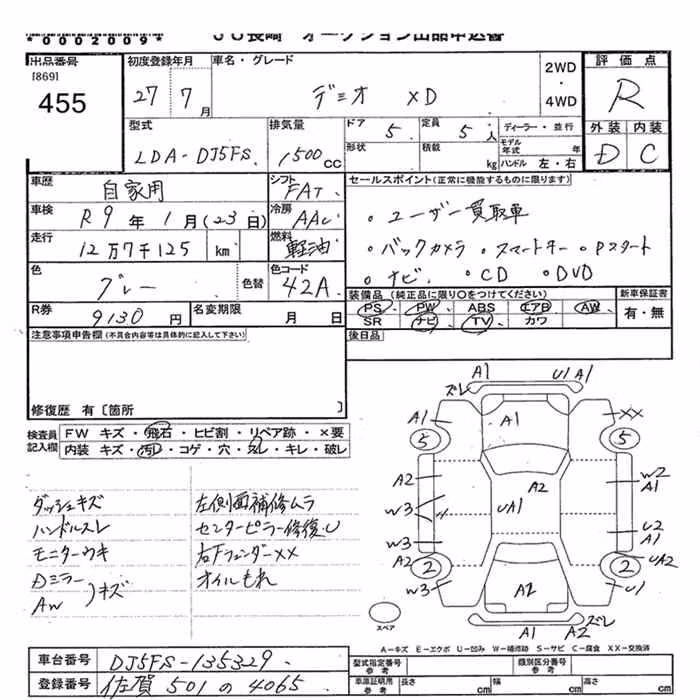 *0002009*
JU長崎 オークション出品申込書
出品番号 [869] 455
初度登録年月 27年 7月
車名・グレード デミオ XD
2WD・4WD
評価点 R
外装 D 内装 C
型式 LDA-DJ5FS
排気量 1500cc
ドア 5 定員 5人
形状 積載 kg
ディーラー・並行
モデル年式 年
ハンドル 左・右
車歴 自家用
シフト FAT
車検 R9年 1月(23日)
冷房 AAC
走行 12万7千125 km
燃料 軽油
色 グレー 色替
色コード 42A
R券 9130円
名変期限 月 日
セールスポイント(正常に機能するものに限ります)
・ユーザー買取車
・バックカメラ ・スマートキー ・Pスタート
・ナビ ・CD ・DVD
装備品(純正品に限り○をつけてください)
PS PW ABS エアB AW
SR ナビ TV カワ
新車保証書 有・無
注意事項申告欄(不具合内容等は具体的に記入して下さい)
後日品
修復歴 有〔箇所 〕
検査員記入欄
FW キズ・飛石・ヒビ割・リペア跡・×要
内装 キズ・汚レ・コゲ・穴・スレ・キレ・破レ
ダッシュキズ 左側面補修ムラ
ハンドルスレ センターピラー修復・U
モニターウキ 右Fフェンダー××
Dミラー オイルもれ
AW キズ
A1 U1 A1
ズレ
A1 A1 XX
5 5
A2 A2 W2 A1
W3 UA1
W3 U2 A1
A2 2 2 UA2
W3 A2 U1
A1 A2 ズレ
スペア
A-キズ E-エクボ U-凹み W-補修跡 S-サビ C-腐食 XX-交換済
車台番号 DJ5FS-135329
登録番号 佐賀 501 の 4065
型式指定番号 参考 類別区分番号 参考
車庫証明用 参考 長さ cm 幅 cm 高さ cm